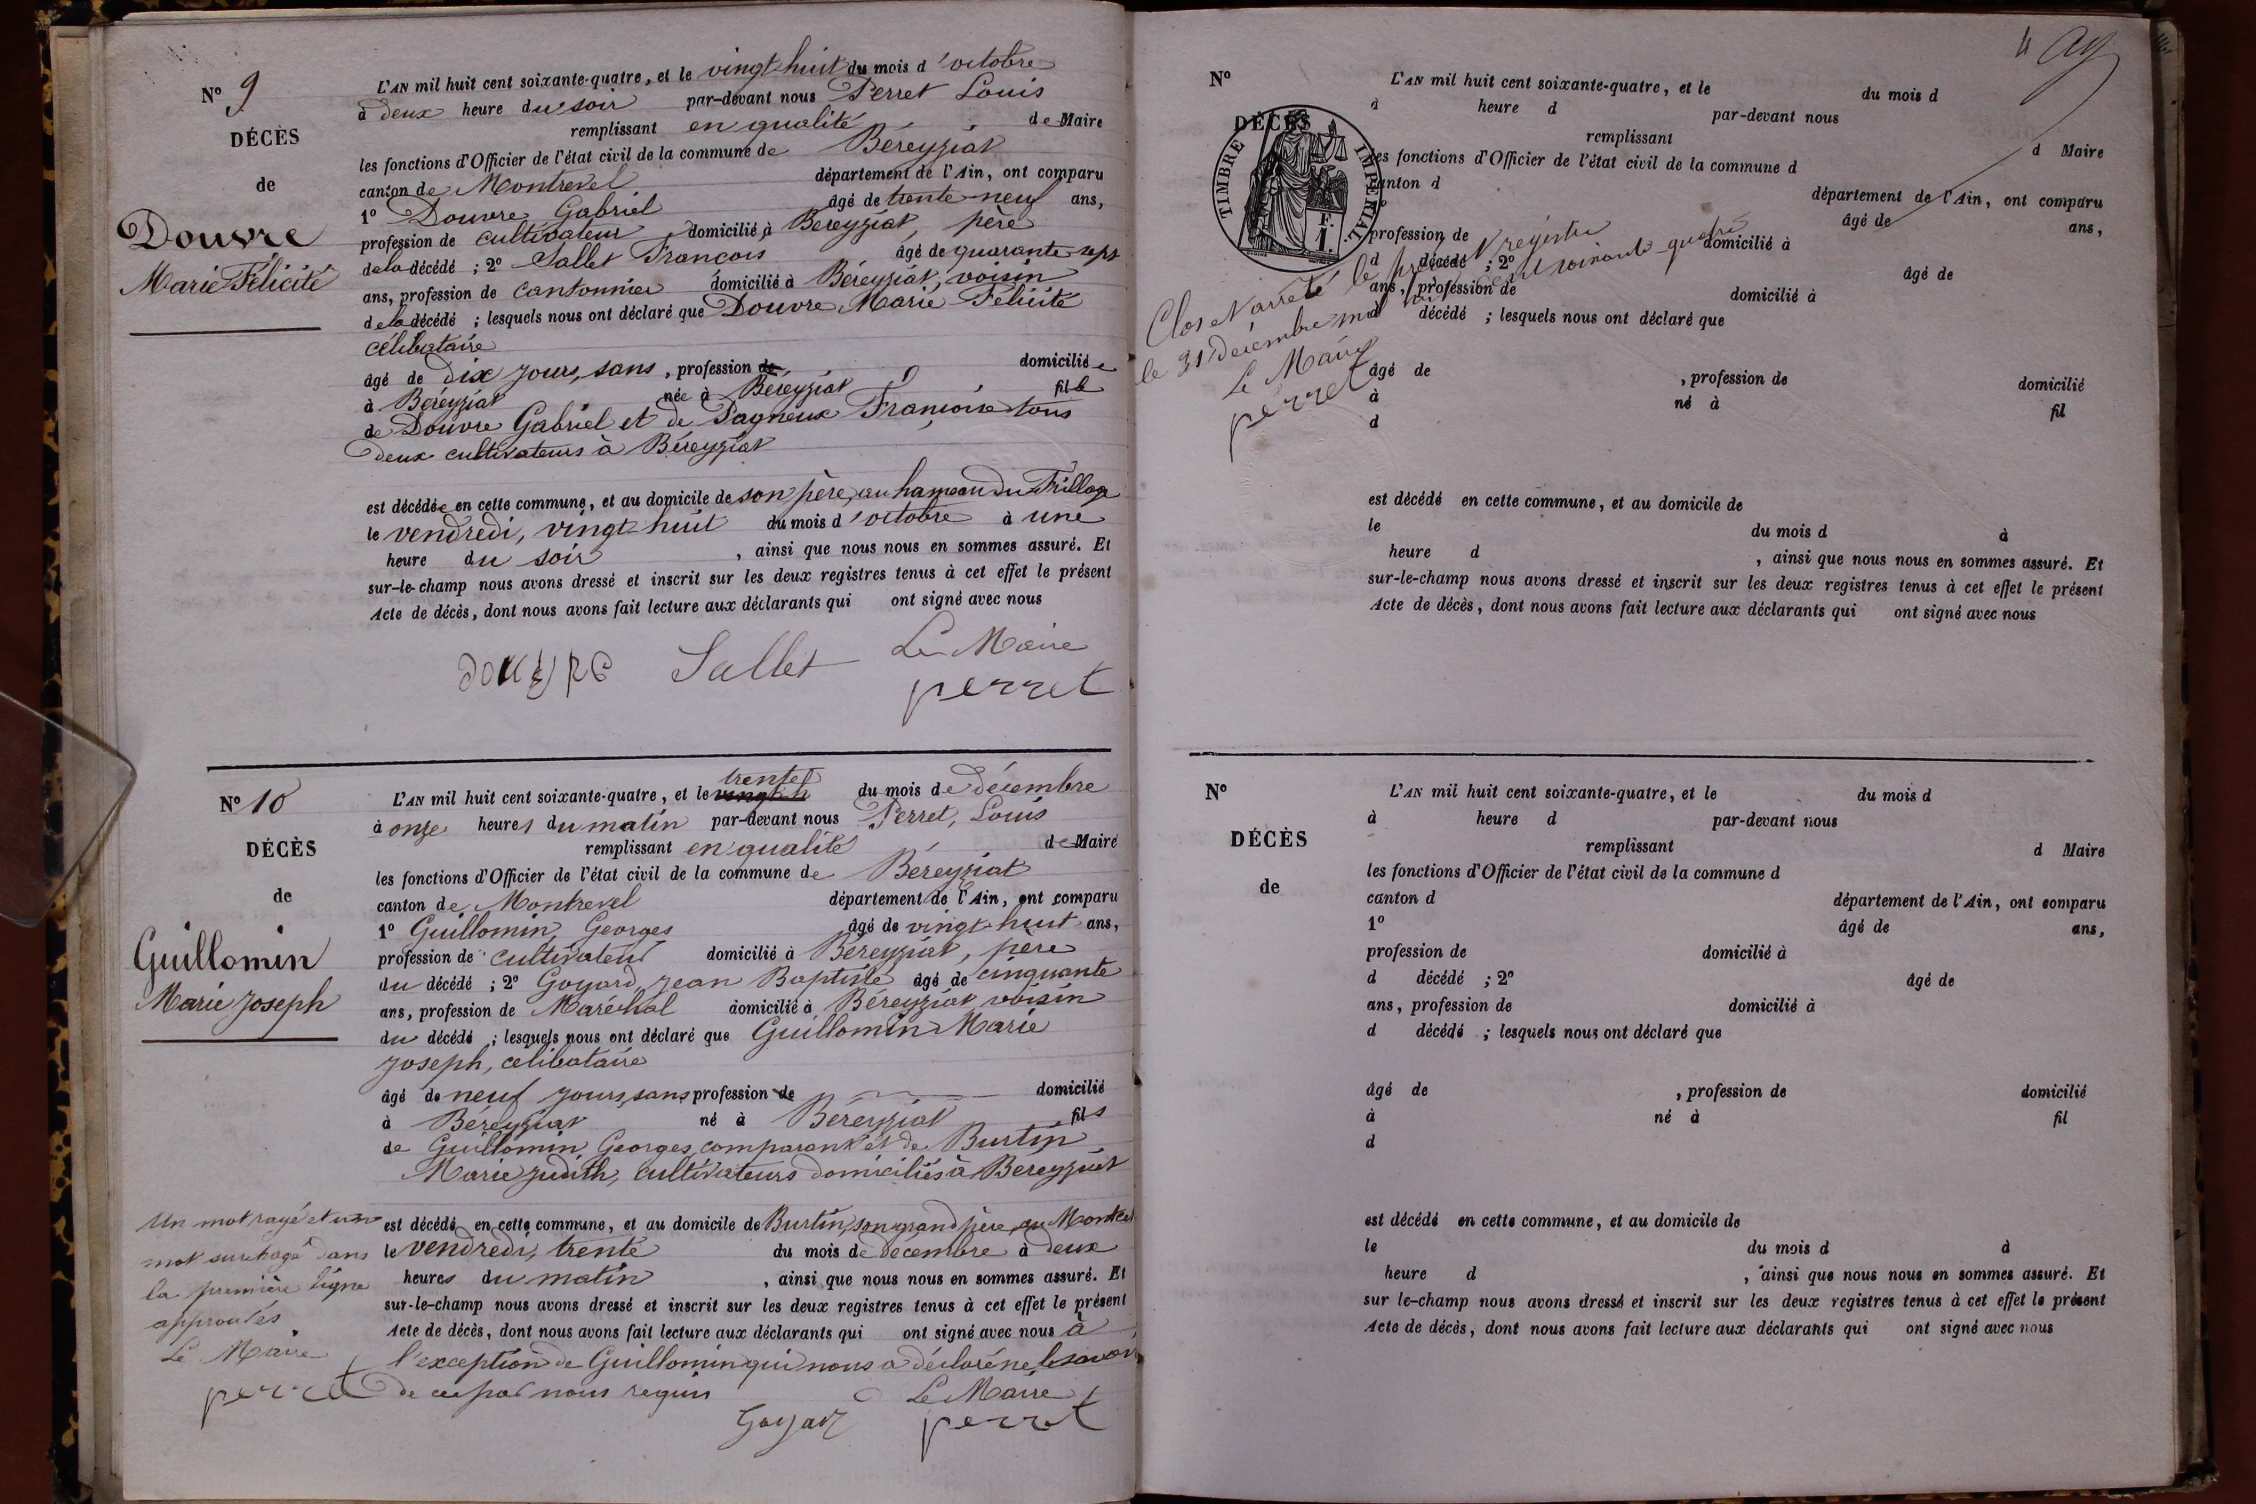 N° 9
DÉCÈS
de
Douvre
Marie Félicité
L'AN mil huit cent soixante-quatre, et le vingt huit du mois d'octobre
à deux heure du soir par-devant nous Perret Louis
remplissant en qualité de Maire
les fonctions d'Officier de l'état civil de la commune de Béreyziat
canton de Montrevel département de l'Ain, ont comparu
1° Douvre Gabriel âgé de trente-neuf ans,
profession de cultivateur domicilié à Béreyziat, père
de la décédé ; 2° Sallet François âgé de quarante sept
ans, profession de cantonnier domicilié à Béreyziat, voisin
de la décédé ; lesquels nous ont déclaré que Douvre Marie Félicité
célibataire
âgé de dix jours, sans, profession de domiciliée
à Béreyziat née à Béreyziat fille
de Douvre Gabriel et de Pagneux Françoise tous
deux cultivateurs à Béreyziat
est décédée en cette commune, et au domicile de son père, au hameau du
le vendredi, vingt-huit du mois d'octobre à une
heure du soir, ainsi que nous nous en sommes assuré. Et
sur-le-champ nous avons dressé et inscrit sur les deux registres tenus à cet effet le présent
Acte de décès, dont nous avons fait lecture aux déclarants qui ont signé avec nous
Le Maire
Sallet
perret
N° 10
DÉCÈS
de
Guillomin
Marie Joseph
L'AN mil huit cent soixante-quatre, et le trente du mois de Décembre
à onze heures du matin par-devant nous Perret, Louis
remplissant en qualité de Maire
les fonctions d'Officier de l'état civil de la commune de Béreyziat
canton de Montrevel département de l'Ain, ont comparu
1° Guillomin Georges âgé de vingt-huit ans,
profession de cultivateur domicilié à Béreyziat, père
du décédé ; 2° Goyard Jean Baptiste âgé de cinquante
ans, profession de Maréchal domicilié à Béreyziat voisin
du décédé ; lesquels nous ont déclaré que Guillomin Marie
Joseph, célibataire
âgé de neuf jours, sans profession de domicilié
à Béreyziat né à Béreyziat fils
de Guillomin Georges, comparant et de Burtin
Marie Judith, cultivateurs domiciliés à Béreyziat
est décédé en cette commune, et au domicile de Burtin, son grand père, au
le vendredi, trente du mois de décembre à deux
heures du matin, ainsi que nous nous en sommes assuré. Et
sur-le-champ nous avons dressé et inscrit sur les deux registres tenus à cet effet le présent
Acte de décès, dont nous avons fait lecture aux déclarants qui ont signé avec nous à
l'exception de Guillomin qui nous a déclaré ne le savoir
de ce par nous requis
Le Maire
Goyard
perret
Un mot rayé et un
mot surchagé dans
la première ligne
approuvés
Le Maire
perret
N°
DÉCÈS
TIMBRE IMPÉRIAL
F.
1.
L'AN mil huit cent soixante-quatre, et le du mois d
à heure d par-devant nous
remplissant d Maire
les fonctions d'Officier de l'état civil de la commune d
canton d département de l'Ain, ont comparu
âgé de ans,
profession de domicilié à
d décédé ; 2° âgé de
ans, profession de domicilié à
d décédé ; lesquels nous ont déclaré que
âgé de , profession de domicilié
à né à fil
d
est décédé en cette commune, et au domicile de
le du mois d à
heure d , ainsi que nous nous en sommes assuré. Et
sur-le-champ nous avons dressé et inscrit sur les deux registres tenus à cet effet le présent
Acte de décès, dont nous avons fait lecture aux déclarants qui ont signé avec nous
Clos et arrêté le présent registre
le 31 décembre mil huit cent soixante-quatre
Le Maire
perret
N°
DÉCÈS
de
L'AN mil huit cent soixante-quatre, et le du mois d
à heure d par-devant nous
remplissant d Maire
les fonctions d'Officier de l'état civil de la commune d
canton d département de l'Ain, ont comparu
1° âgé de ans,
profession de domicilié à
d décédé ; 2° âgé de
ans, profession de domicilié à
d décédé ; lesquels nous ont déclaré que
âgé de , profession de domicilié
à né à fil
d
est décédé en cette commune, et au domicile de
le du mois d à
heure d , ainsi que nous nous en sommes assuré. Et
sur le-champ nous avons dressé et inscrit sur les deux registres tenus à cet effet le présent
Acte de décès, dont nous avons fait lecture aux déclarants qui ont signé avec nous